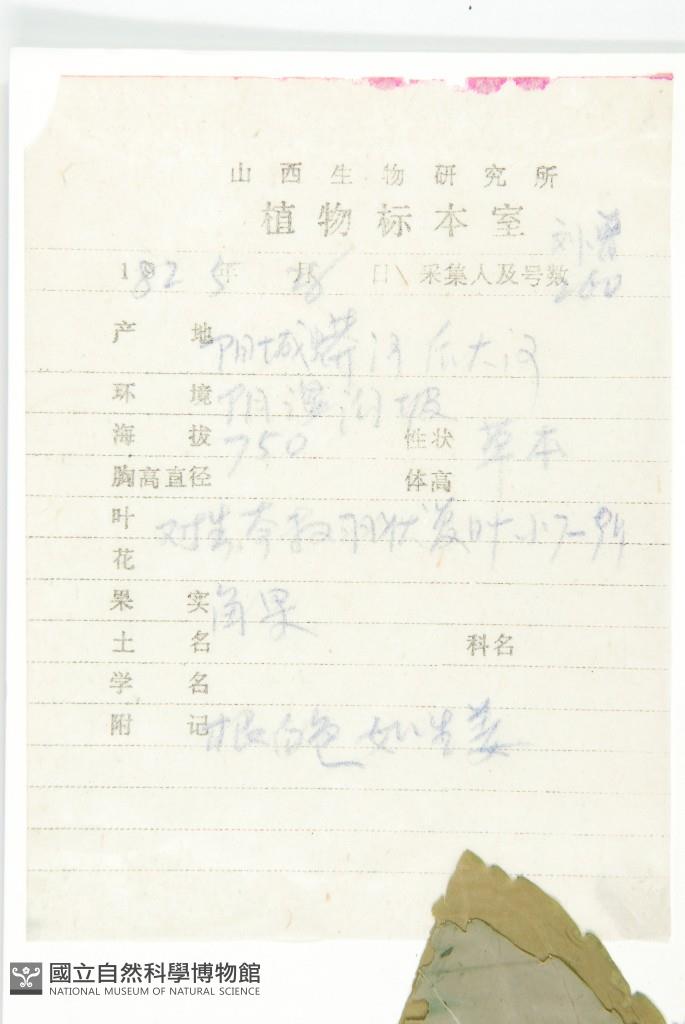 山西生物研究所
植物标本室
刘 曾
1982年5月28日 采集人及号数 260
产地 阳城蟒河
环境 阴湿沟坡
海拔 750 性状 草本
胸高直径 体高
叶 对生奇数羽状复叶 小7-9片
花
果实 角果
土名 科名
学名
附记 根白色如生姜
國立自然科學博物館
NATIONAL MUSEUM OF NATURAL SCIENCE